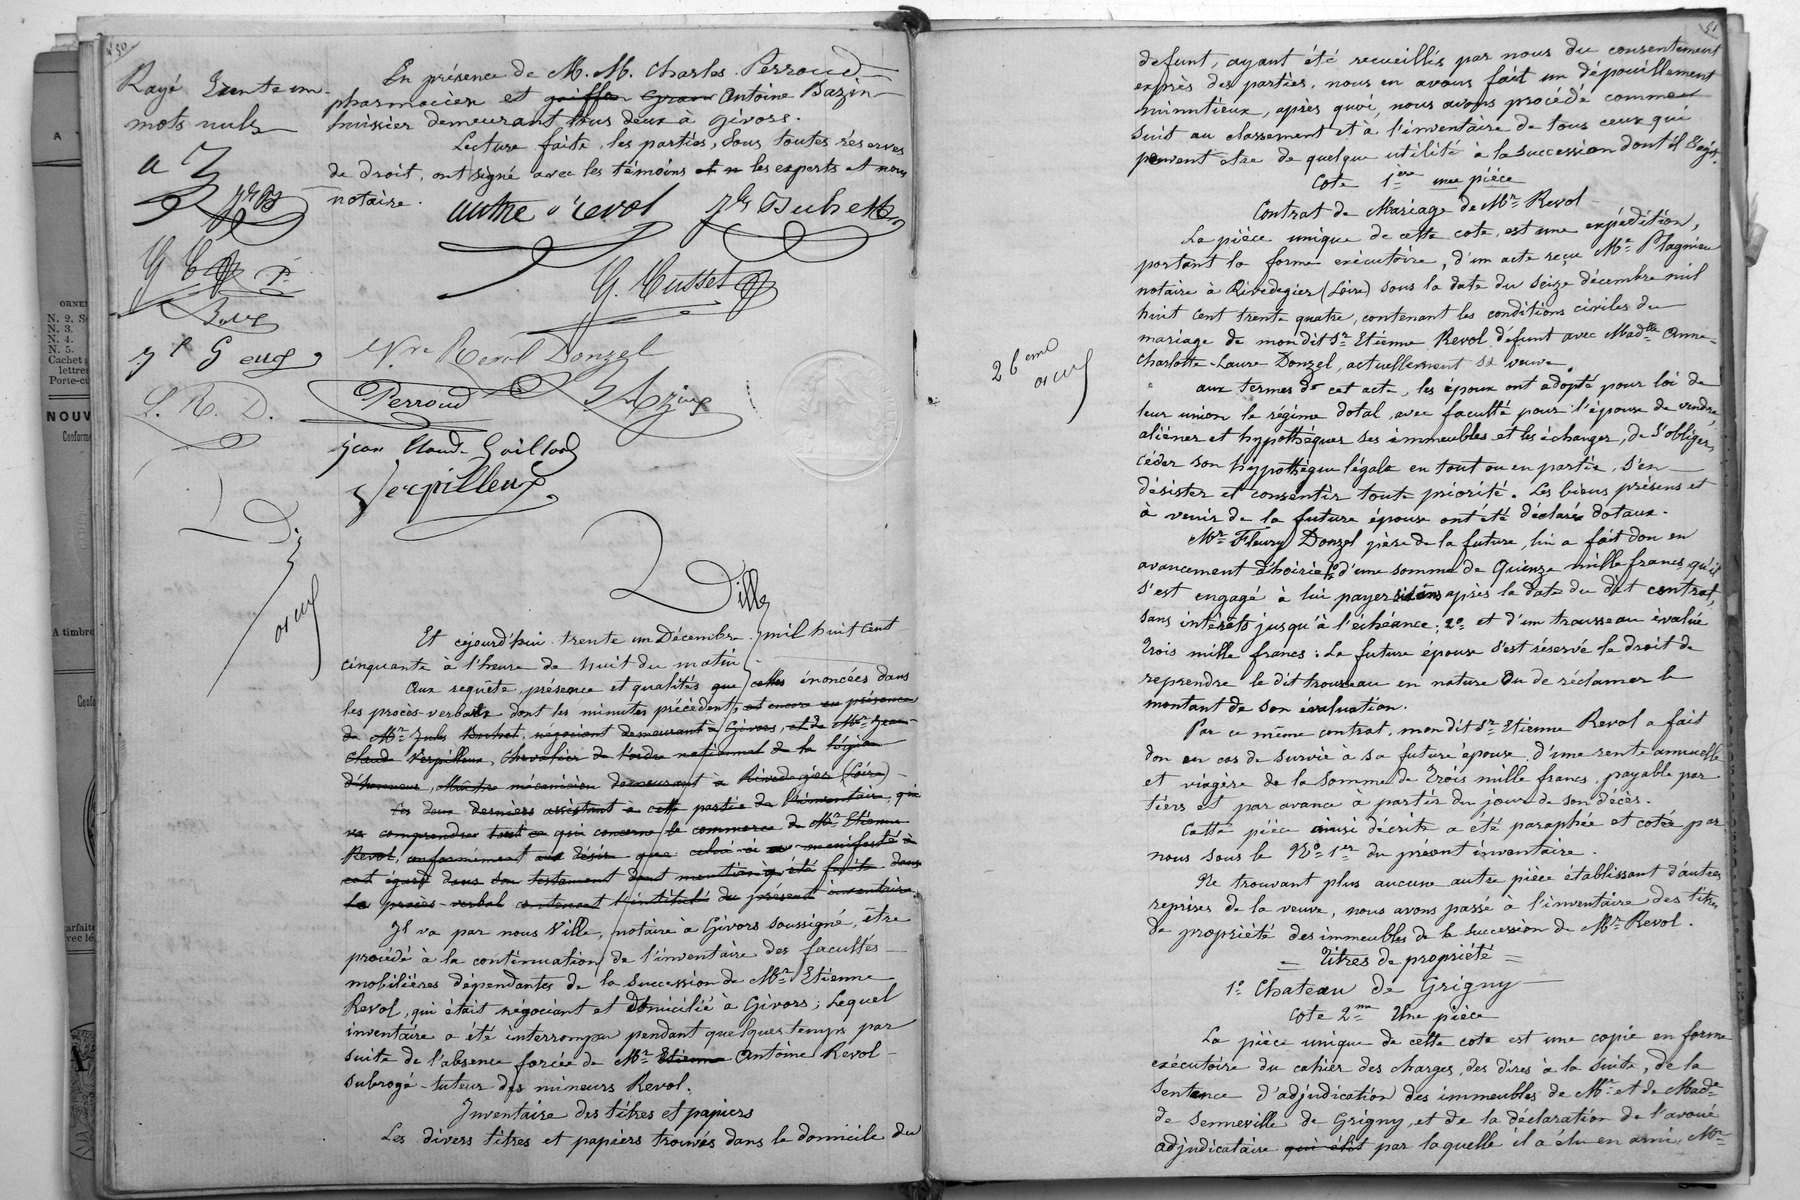 50
Rayé trente un
mots nuls
En présence de M. M. Charles Perroud
pharmacien et Antoine Bazin
huissier demeurant tous deux à Givors.
Lecture faite, les parties, sous toutes réserves
de droit, ont signé avec les témoins et les experts et nous
notaire.
G. Musset
Vve Revol Donzel
Perroud
L. R. D.
Jean Claude
Verpilleux
Dille
Et cejourd'hui trente un Décembre mil huit cent
cinquante à l'heure de huit du matin
Aux requête, présence et qualités que celles énoncées dans
les procès-verbaux dont les minutes précèdent, et encore en présence
de Mr Jules Buhet, négociant demeurant à Givors, et de Mr Jean-
Claude Verpilleux, Chevalier de l'ordre national de la légion
d'honneur, Maître mécanicien demeurant à Rivedegier (Loire) -
Ces deux derniers assistant à cette partie de l'inventaire, qui
va comprendre tout ce qui concerne le commerce de Mr Etienne
Revol, conformément au désir que celui-ci a manifesté à
cet égard dans son testament dont mention a été faite dans
le procès-verbal contenant l'intitulé du présent inventaire.
Il va par nous Ville, notaire à Givors soussigné, être
procédé à la continuation de l'inventaire des facultés
mobilières dépendantes de la succession de Mr Etienne
Revol, qui était négociant et domicilié à Givors; Lequel
inventaire a été interrompu pendant quelques temps par
suite de l'absence forcée de Mr Etienne Antoine Revol -
subrogé-tuteur des mineurs Revol.
Inventaire des titres et papiers
Les divers titres et papiers trouvés dans le domicile du
51
defunt, ayant été recueillis par nous du consentement
exprès des parties, nous en avons fait un dépouillement
minutieux, après quoi, nous avons procédé comme
suit au classement et à l'inventaire de tous ceux qui
peuvent etre de quelque utilité à la succession dont il s'agit.
Cote 1ere une pièce
Contrat de Mariage de Mr Revol
La pièce unique de cette cote, est une expédition,
portant la forme exécutoire, d'un acte reçu Me Plagnieu
notaire à Rivedegier (Loire) sous la date du seize décembre mil
huit cent trente quatre, contenant les conditions civiles du
mariage de mondit Sr Etienne Revol, defunt avec Madlle Anne-
Charlotte-Laure Donzel, actuellement sa veuve.
26eme
aux termes de cet acte, les époux ont adopté pour loi de
leur union le régime dotal, avec faculté pour l'épouse de vendre,
aliéner et hypothéquer ses immeubles et les échanger, de s'obliger,
céder son hypothèque légale en tout ou en partie, s'en
désister et consentir toute priorité. Les biens présens et
à venir de la future épouse ont été déclarés dotaux.
Mr Fleury Donzel père de la future, lui a fait don en
avancement d'hoirie 1o d'une somme de Quinze mille francs, qu'il
s'est engagé à lui payer six ans après la date du dit contrat,
sans intérêts jusqu'à l'échéance; 2o et d'un trousseau évalué
trois mille francs: La future épouse s'est réservé le droit de
reprendre le dit trousseau en nature ou de réclamer le
montant de son évaluation.
Par ce même contrat, mondit Sr Etienne Revol a fait
don en cas de survie à sa future épouse, d'une rente annuelle
et viagère de la somme de trois mille francs, payable par
tiers et par avance à partir du jour de son décès.
Cette pièce ainsi décrite a été paraphée et cotée par
nous sous le No 1er du présent inventaire.
Ne trouvant plus aucune autre pièce établissant d'autres
reprises de la veuve, nous avons passé à l'inventaire des titres
de propriété des immeubles de la succession de Mr Revol.
= Titres de propriété =
1o Chateau de Grigny
Cote 2me Une pièce
La pièce unique de cette cote est une copie en forme
exécutoire du cahier des charges, des dires à la suite, de la
sentence d'adjudication des immeubles de Mr et de Made
de Senneville de Grigny, et de la déclaration de l'avoué
adjudicataire qui élit par laquelle il a élu en ami, Mr